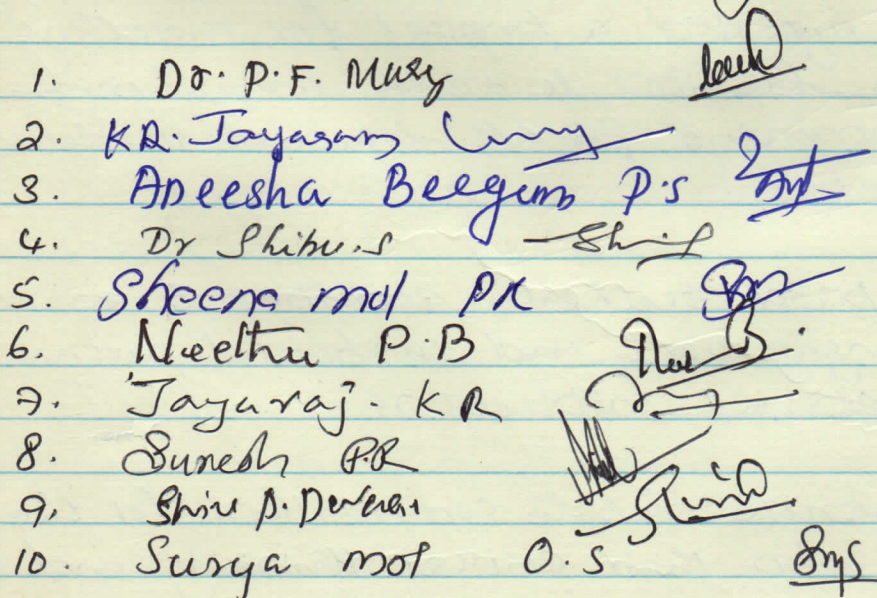 1. Dr. P.F. Mary
2. K.R. Jayaram
3. Aneesha Beegum P.S
4. Dr Shibu.S
5. Sheena mol P.K
6. Neethu P.B
7. Jayaraj. K R
8. Suresh P.R
9. Shini P.
10. Surya mol O.S